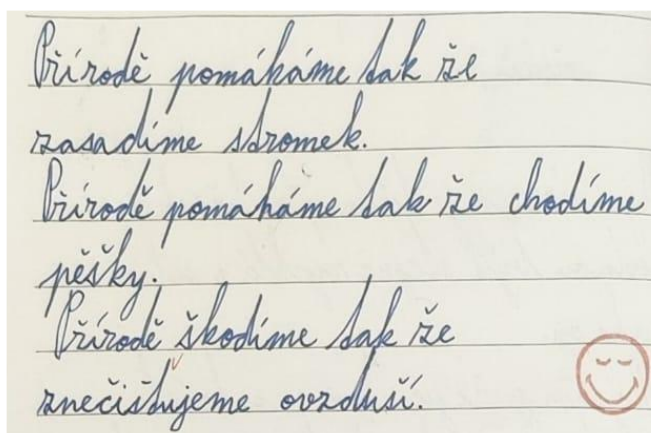 Přírodě pomáháme tak že
zasadíme stromek.
Přírodě pomáháme tak že chodíme
pěšky.
Přírodě škodíme tak že
znečišťujeme ovzduší.